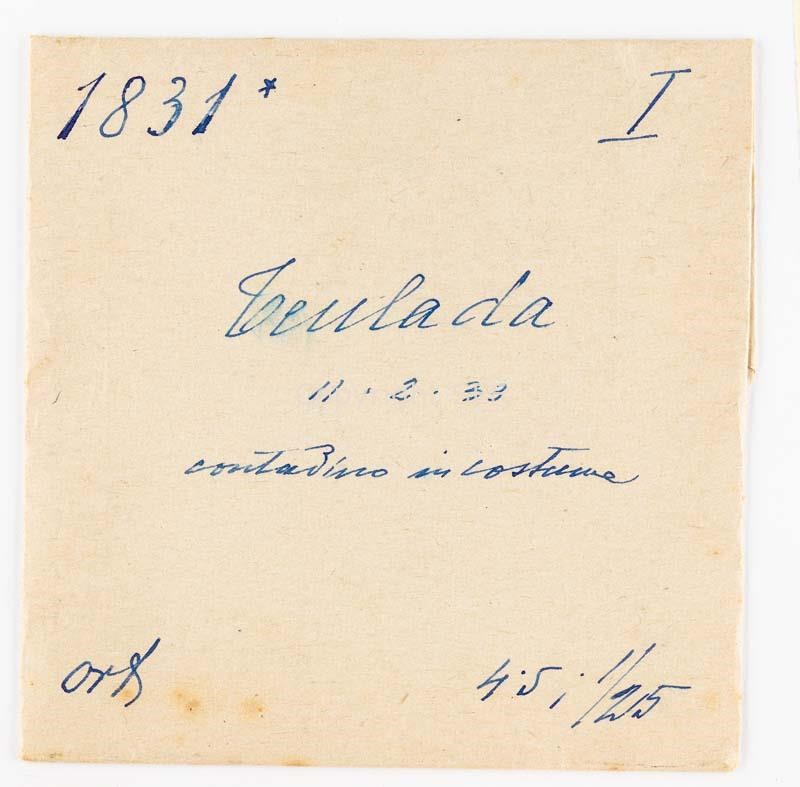 1831* I
Teulada
11 · 2 · 33
contadino in costume
orth
4.5; 1/25